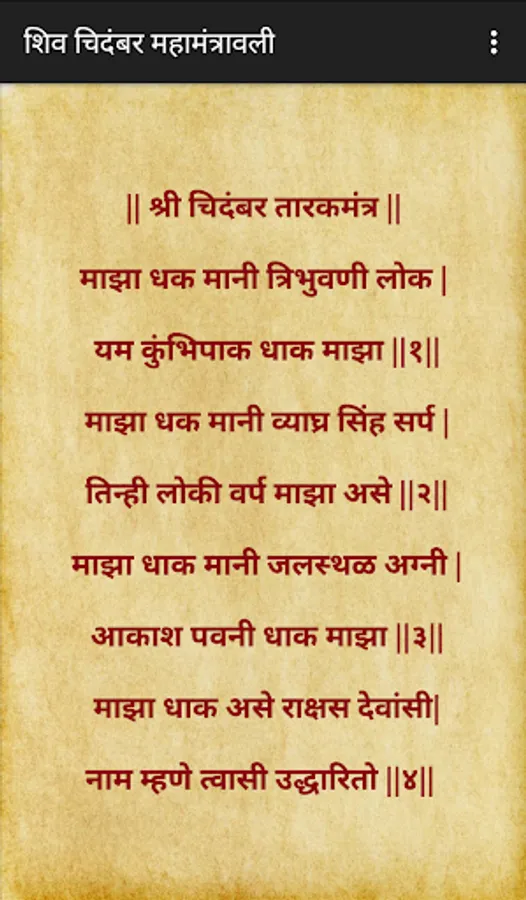 शिव चिदंबर महामंत्रावली
|| श्री चिदंबर तारकमंत्र ||
माझा धक मानी त्रिभुवणी लोक |
यम कुंभिपाक धाक माझा ||१||
माझा धक मानी व्याघ्र सिंह सर्प |
तिन्ही लोकी वर्प माझा असे ||२||
माझा धाक मानी जलस्थळ अग्नी |
आकाश पवनी धाक माझा ||३||
माझा धाक असे राक्षस देवांसी|
नाम म्हणे त्वासी उद्धारितो ||४||